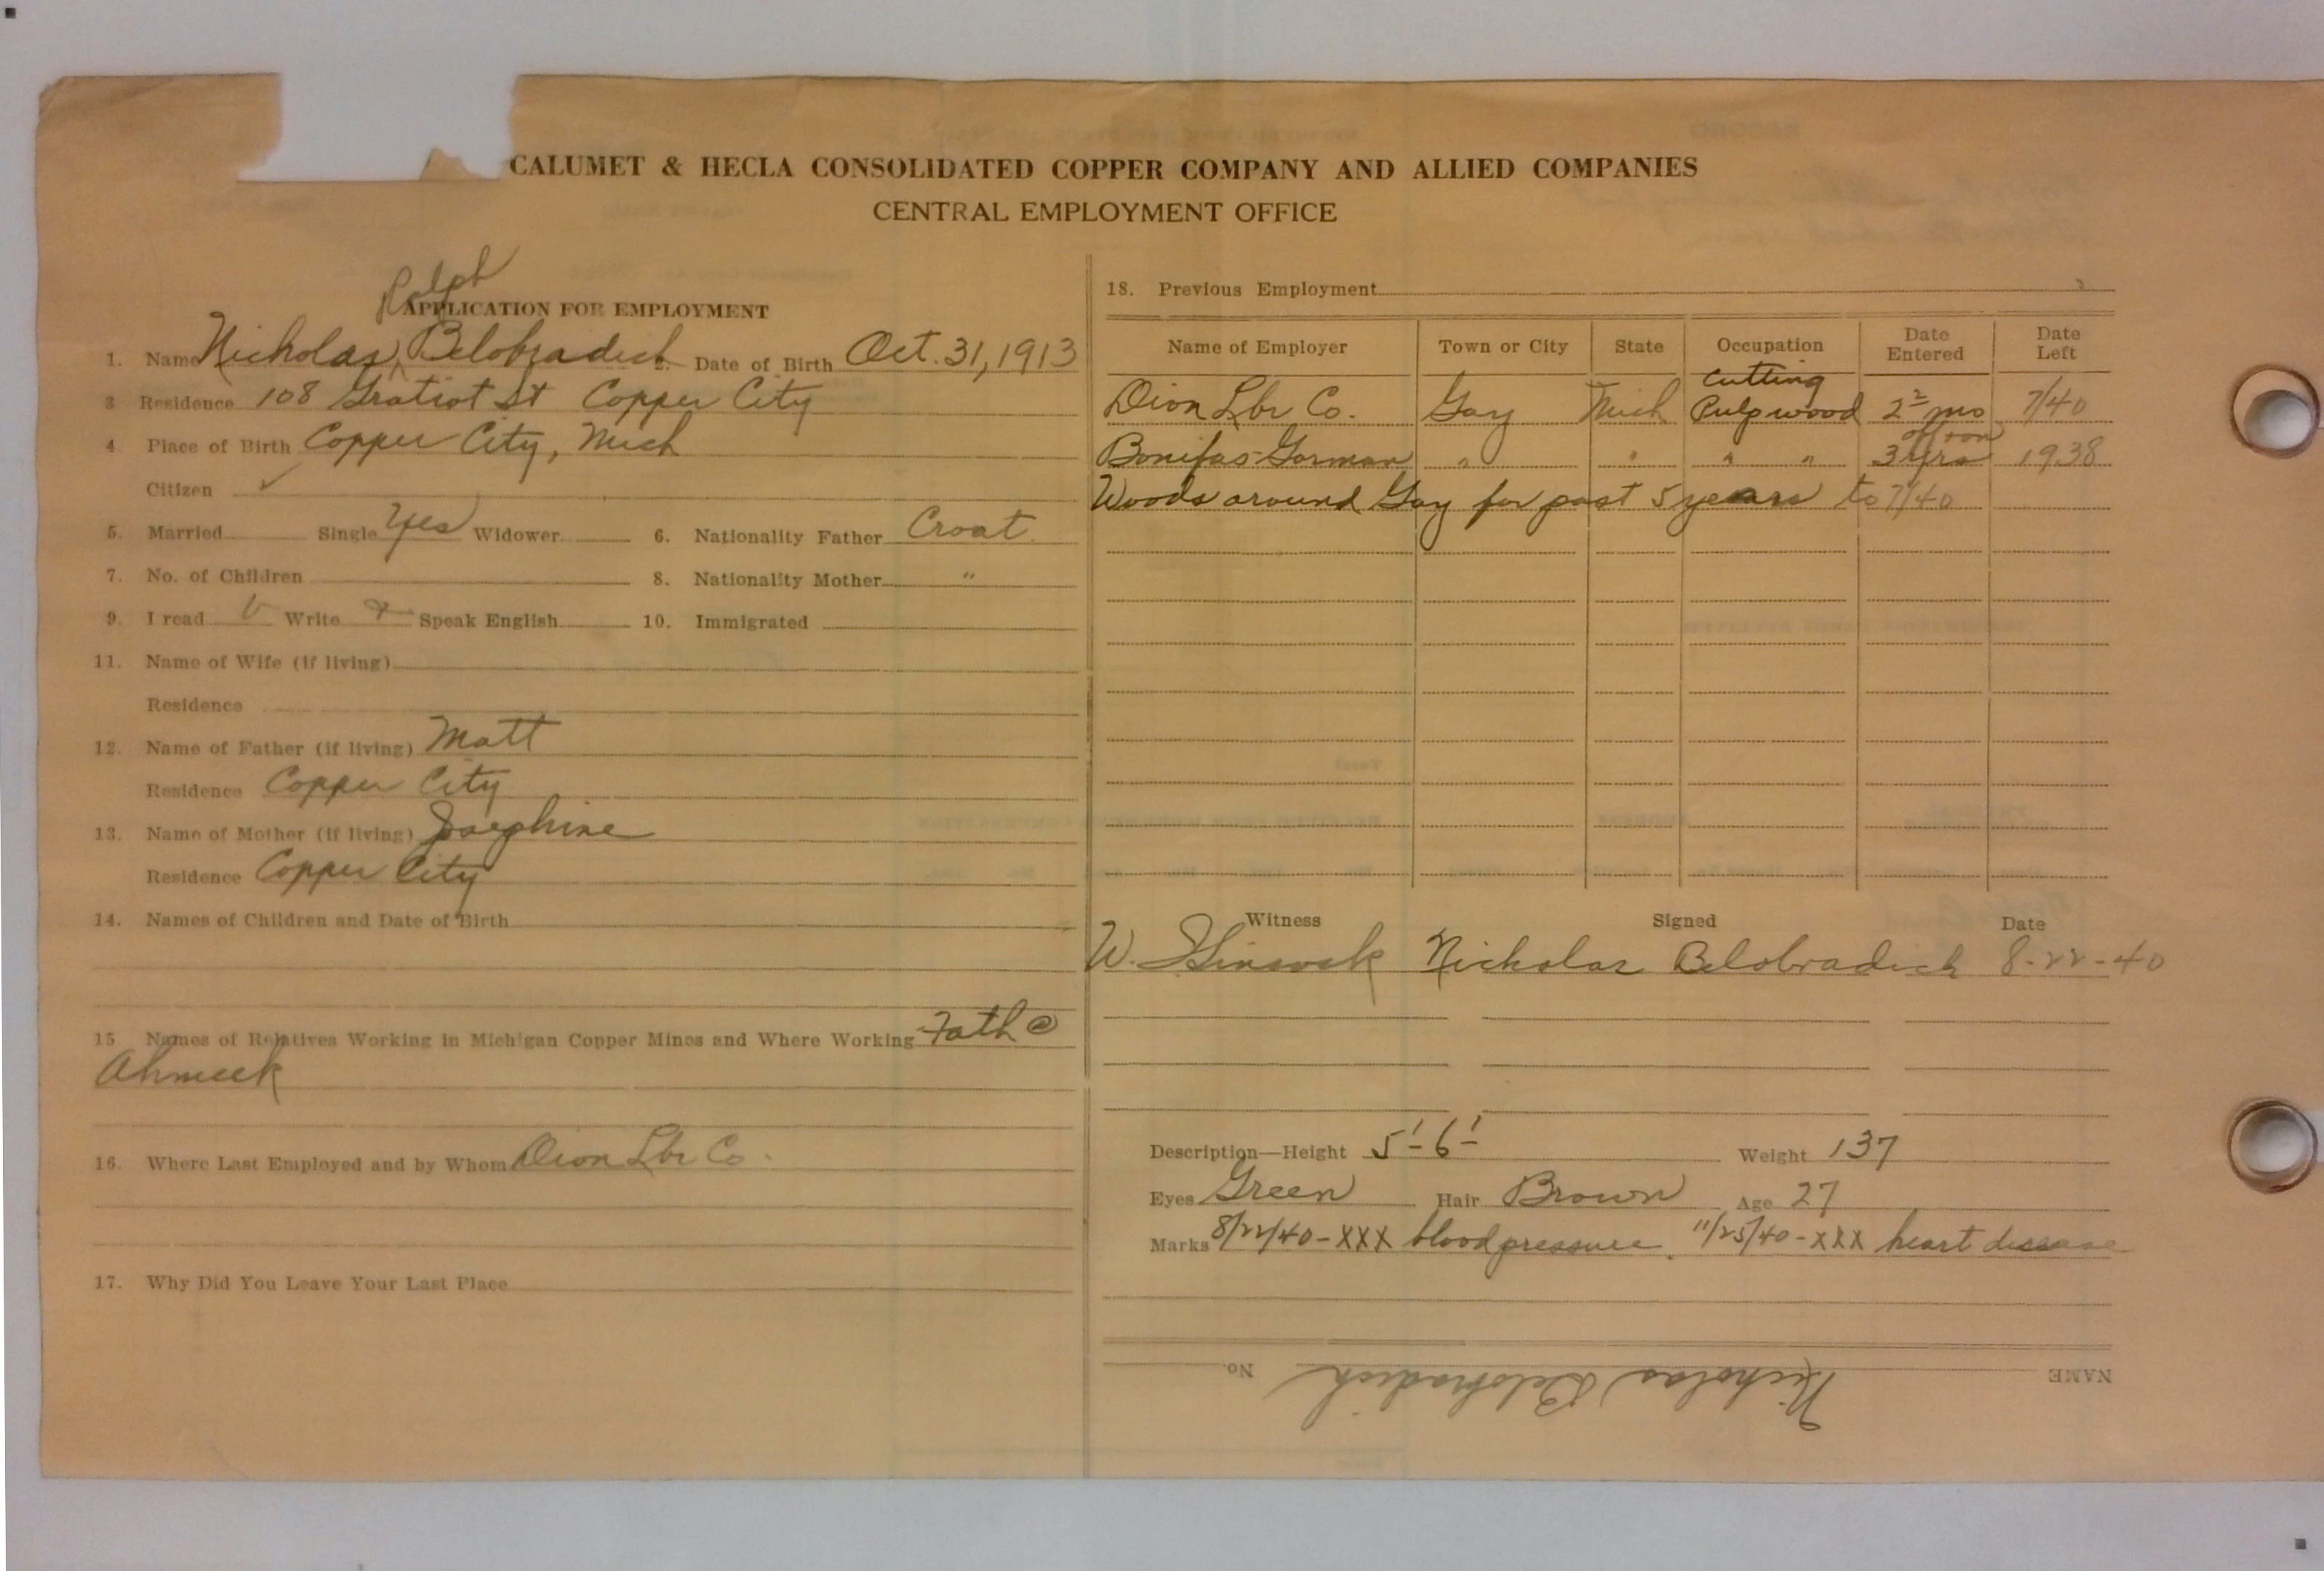 CALUMET & HECLA CONSOLIDATED COPPER COMPANY AND ALLIED COMPANIES
CENTRAL EMPLOYMENT OFFICE
Ralph
APPLICATION FOR EMPLOYMENT
1. Name Nicholas Belobradich 2. Date of Birth Oct. 31, 1913
3 Residence 108 Gratiot St Copper City
4 Place of Birth Copper City, Mich
Citizen ✓
5. Married Single Yes Widower 6. Nationality Father Croat
7. No. of Children 8. Nationality Mother "
9. I read Write Speak English 10. Immigrated
11. Name of Wife (if living)
Residence
12. Name of Father (if living) Matt
Residence Copper City
13. Name of Mother (if living) Josephine
Residence Copper City
14. Names of Children and Date of Birth
15 Names of Relatives Working in Michigan Copper Mines and Where Working Fath @
Ahmeek
16. Where Last Employed and by Whom Dion Lbr Co.
17. Why Did You Leave Your Last Place
18. Previous Employment
Name of Employer Town or City State Occupation Date Entered Date Left
Dion Lbr Co. Gay Mich Cutting Pulpwood 2 mo 7/40
Bonifas-Gorman " " " " 3 yrs off & on 1938
Woods around Gay for past 5 years to 7/40
Witness Signed Date
W. Nicholas Belobradich 8-22-40
Description—Height 5'-6' Weight 137
Eyes Green Hair Brown Age 27
Marks 8/22/40-XXX blood pressure. 11/25/40-XXX heart disease
NAME Nicholas Belobradich No.